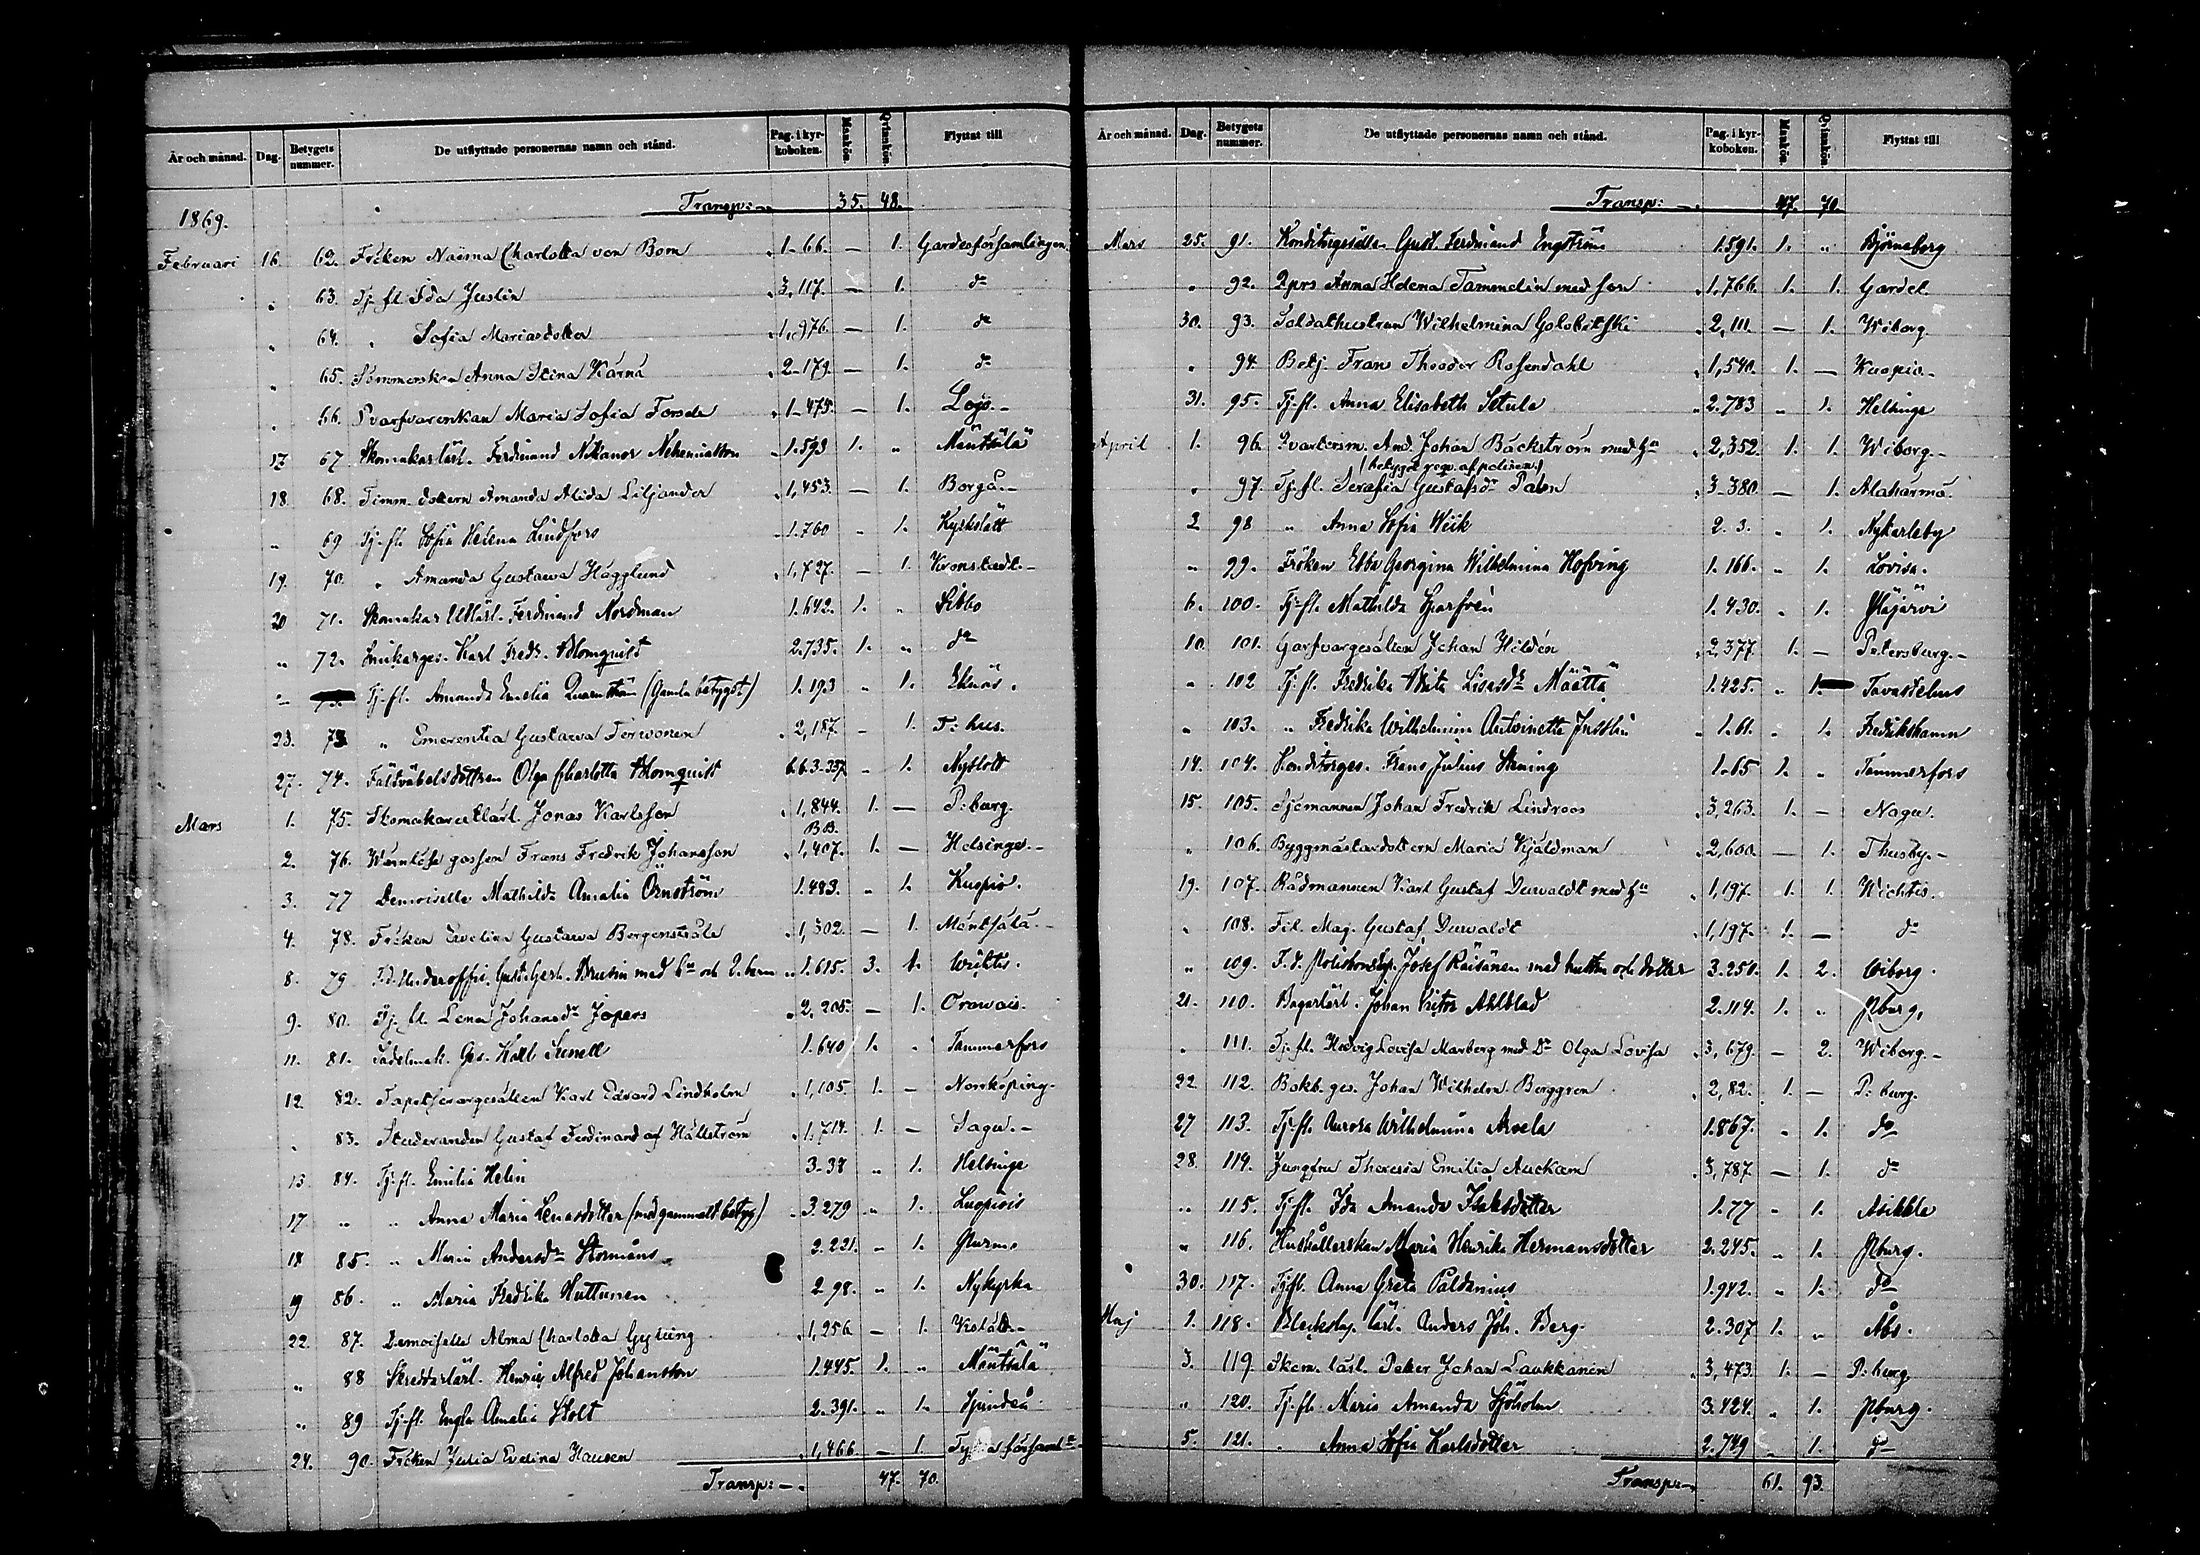 År och månad. Dag. Betygets nummer. De utflyttade personernas namn och stånd. Pag. i kyrkoboken. Mankön. Qvinnkön. Flyttat till
Transp:– 35. 48.
1869.
Februari 16 62. Fröken Naëma Charlotta von Born 1-66. — 1. Gardesförsamlingen
" 63. Tj. fl. Ida Justin 3,117. — 1. do
" 64. " Sofia Mariasdotter 1,976. — 1. do
" 65. Sömmerskan Anna Stina Kärnä 2-179. — 1. do
" 66. Svarfvarenkan Maria Sofia Forsde 1-475. — 1. Lojo.–
17 67. Skomakarlärl. Ferdinand Nikanor Nehemiasson 1.593 1. " Mäntsälä
18. 68. Timm. dottern Amanda Alida Liljander 1,453. — 1. Borgå.–
" 69 Tj. fl. Sofia Helena Lindfors 1.760 " 1. Kyrkslätt
19. 70. " Amanda Gustawa Hägglund 1,727. — 1. Kronstadt–
20 71. Skomakar Utlärl. Ferdinand Nordman 1.642. 1. " Sibbo
" 72. Smikarges. Karl Fredr. Blomquist 2.735. 1. " do
" Tj. fl. Amanda Emelia (Gamla betyget) 1.193 " 1. Eknäs.
23. 73 " Emerentia Gustawa Terwonen 2,187. " 1. T:hus.
27. 74. Fältväbelsdottren Olga Charlotta Blomquist 663-337. " 1. Nyslott
Mars 1. 75. Skomakareutlärl. Jonas Karlsson 1,844. 1. — P:burg.
2. 76. Wärnlösa gossen Frans Fredrik Johansson BB. 1,407. 1. — Helsinge.–
3. 77 Demoiselle Mathilda Amalia Örnström 1.483. " 1. Kuopio.
4. 78. Fröken Ewelina Gustawa Bergenstråle 1,302. — 1. Mäntsälä.–
8. 79 F.d. Underoffi. Gust. Gerh. Brusin med hu och 2. barn 1.615. 3. 1. Wichtis.
9. 80. Tj. fl. Lena Johansdr Jopers 2,205. — 1. Orawais.
11. 81. Sadelmak. Ges. Karl Sunell 1.640 1. " Tammerfors
12. 82. Tapetserargesällen Karl Edvard Lindholm 1,105. 1. — Norrköping.
" 83. Studeranden Gustaf Ferdinand af Hällström 1,714. 1. — Sagu.–
13 84. Tj. fl. Emilia Helin 3-38 " 1. Helsinge
17 " " Anna Maria Lenasdotter (med gammalt betyg) 3.279 " 1. Luopiois
18 85. " Maria Andersdr Stormåns 2.221. " 1. Purmo
19 86. " Maria Fredrika Huttunen 2.98. " 1. Nykyrka
22. 87. Demoiselle Alma Charlotta Gyhling 1,256 — 1.
" 88 Skreddarlärl. Henric Alfred Johansson 1.445. 1. " Mäntsälä
" 89 Tj. fl. Engla Amalia Stolt 2.391. " 1. Sjundeå
24. 90. Fröken Julia Evelina Hausen 1,466. — 1. Tyska församl.
Transp:–. 47. 70.
År och månad. Dag. Betygets nummer. De utflyttade personernas namn och stånd. Pag. i kyrkoboken. Mankön. Qvinnkön. Flyttat till
Transp: –. 47. 70.
Mars 25. 91. Konditorgesällen Gust. Ferdinand Engström 1.591. 1. " Björneborg
" 92. Anna Helena Tammelin med son 1,766. 1. 1. Gardet.
30. 93. Soldathustrun Wilhelmina Golobitski 2,111. — 1. Wiborg.
" 94. Betj. Frans Theodor Rosendahl 1,540. 1. — Kuopio.–
31. 95. Tj. fl. Anna Elisabeth Setula 2.783 " 1. Helsinge
April 1. 96. Qvartersm. And. Johan Bäckström med hu 2,352. 1. 1. Wiborg.–
(betyget reqv. af polisen)
" 97. Tj. fl. Serafia Gustafsdr Palon 3-380 — 1. Alahärmä.
2 98 " Anna Sofia Wiik 2. 3. " 1. Nykarleby
" 99. Fröken Ebba Georgina Wilhelmina Hofving 1.166. " 1. Lovisa.
6. 100. Tj. fl. Mathilda Sparfvén 1.430. " 1. Ylöjärvi
10. 101. Garfvargesällen Johan Hildén 2,377 1. — Petersburg.–
" 102 Tj. fl. Fredrika Brita Lisasdr Määttä 1.425. " 1. Tavastehus
" 103. " Fredrika Wilhelmina Antoinette Jusslin 1.61. " 1. Fredrikshamn
14. 104. Konditorges. Frans Julius Stening 1.65 1. " Tammerfors
15. 105. Sjömannen Johan Fredrik Lindroos 3,263. 1. — Nagu.
" 106. Byggmästardottern Maria Kjäldman 2,600. — 1. Thusby.–
19. 107. Rådmannen Karl Gustaf Durvaldt med hu 1,197. 1. 1. Wichtis.
" 108. Fil. Mag. Gustaf Durvaldt 1,197. 1. — do
" 109. F.d. Poliskonst. Josef Räisänen med hustru och dotter 3.250. 1. 2. Wiborg.
21. 110. Bagarlärl. Johan Victor Ahlblad 2.114. 1. " Pburg,
" 111. Tj. fl. Hedvig Lovisa Marberg med Dr Olga Lovisa 3,679. — 2. Wiborg.–
22. 112. Bokb. ges. Johan Wilhelm Berggren 2,82. 1. — P:burg.
27 113. Tj. fl. Aurora Wilhelmina Arvela 1.867. " 1. do
28. 114. Jungfru Theresia Emilia Auckam 3,787. — 1. do
" 115. Tj. fl. Ida Amanda Isaksdotter 1.77 " 1. Asikkla
" 116. Hushållerskan Maria Henrika Hermansdotter 2.245. " 1. Pburg.
30. 117. Tj. fl. Anna Greta Paldanius 1.942. " 1. do
Maj 1. 118. Bleckslag. lärl. Anders Joh. Berg. 2.307 1. " Åbo.
3. 119. Skom. lärl. Petter Johan Laukkanen 3,473. 1. — P:burg.
" 120. Tj. fl. Maria Amanda Sjöholm 3.424. " 1. Pburg.
5. 121. " Anna Sofia Karlsdotter 2.749 " 1. do
Transp:–. 61. 93.